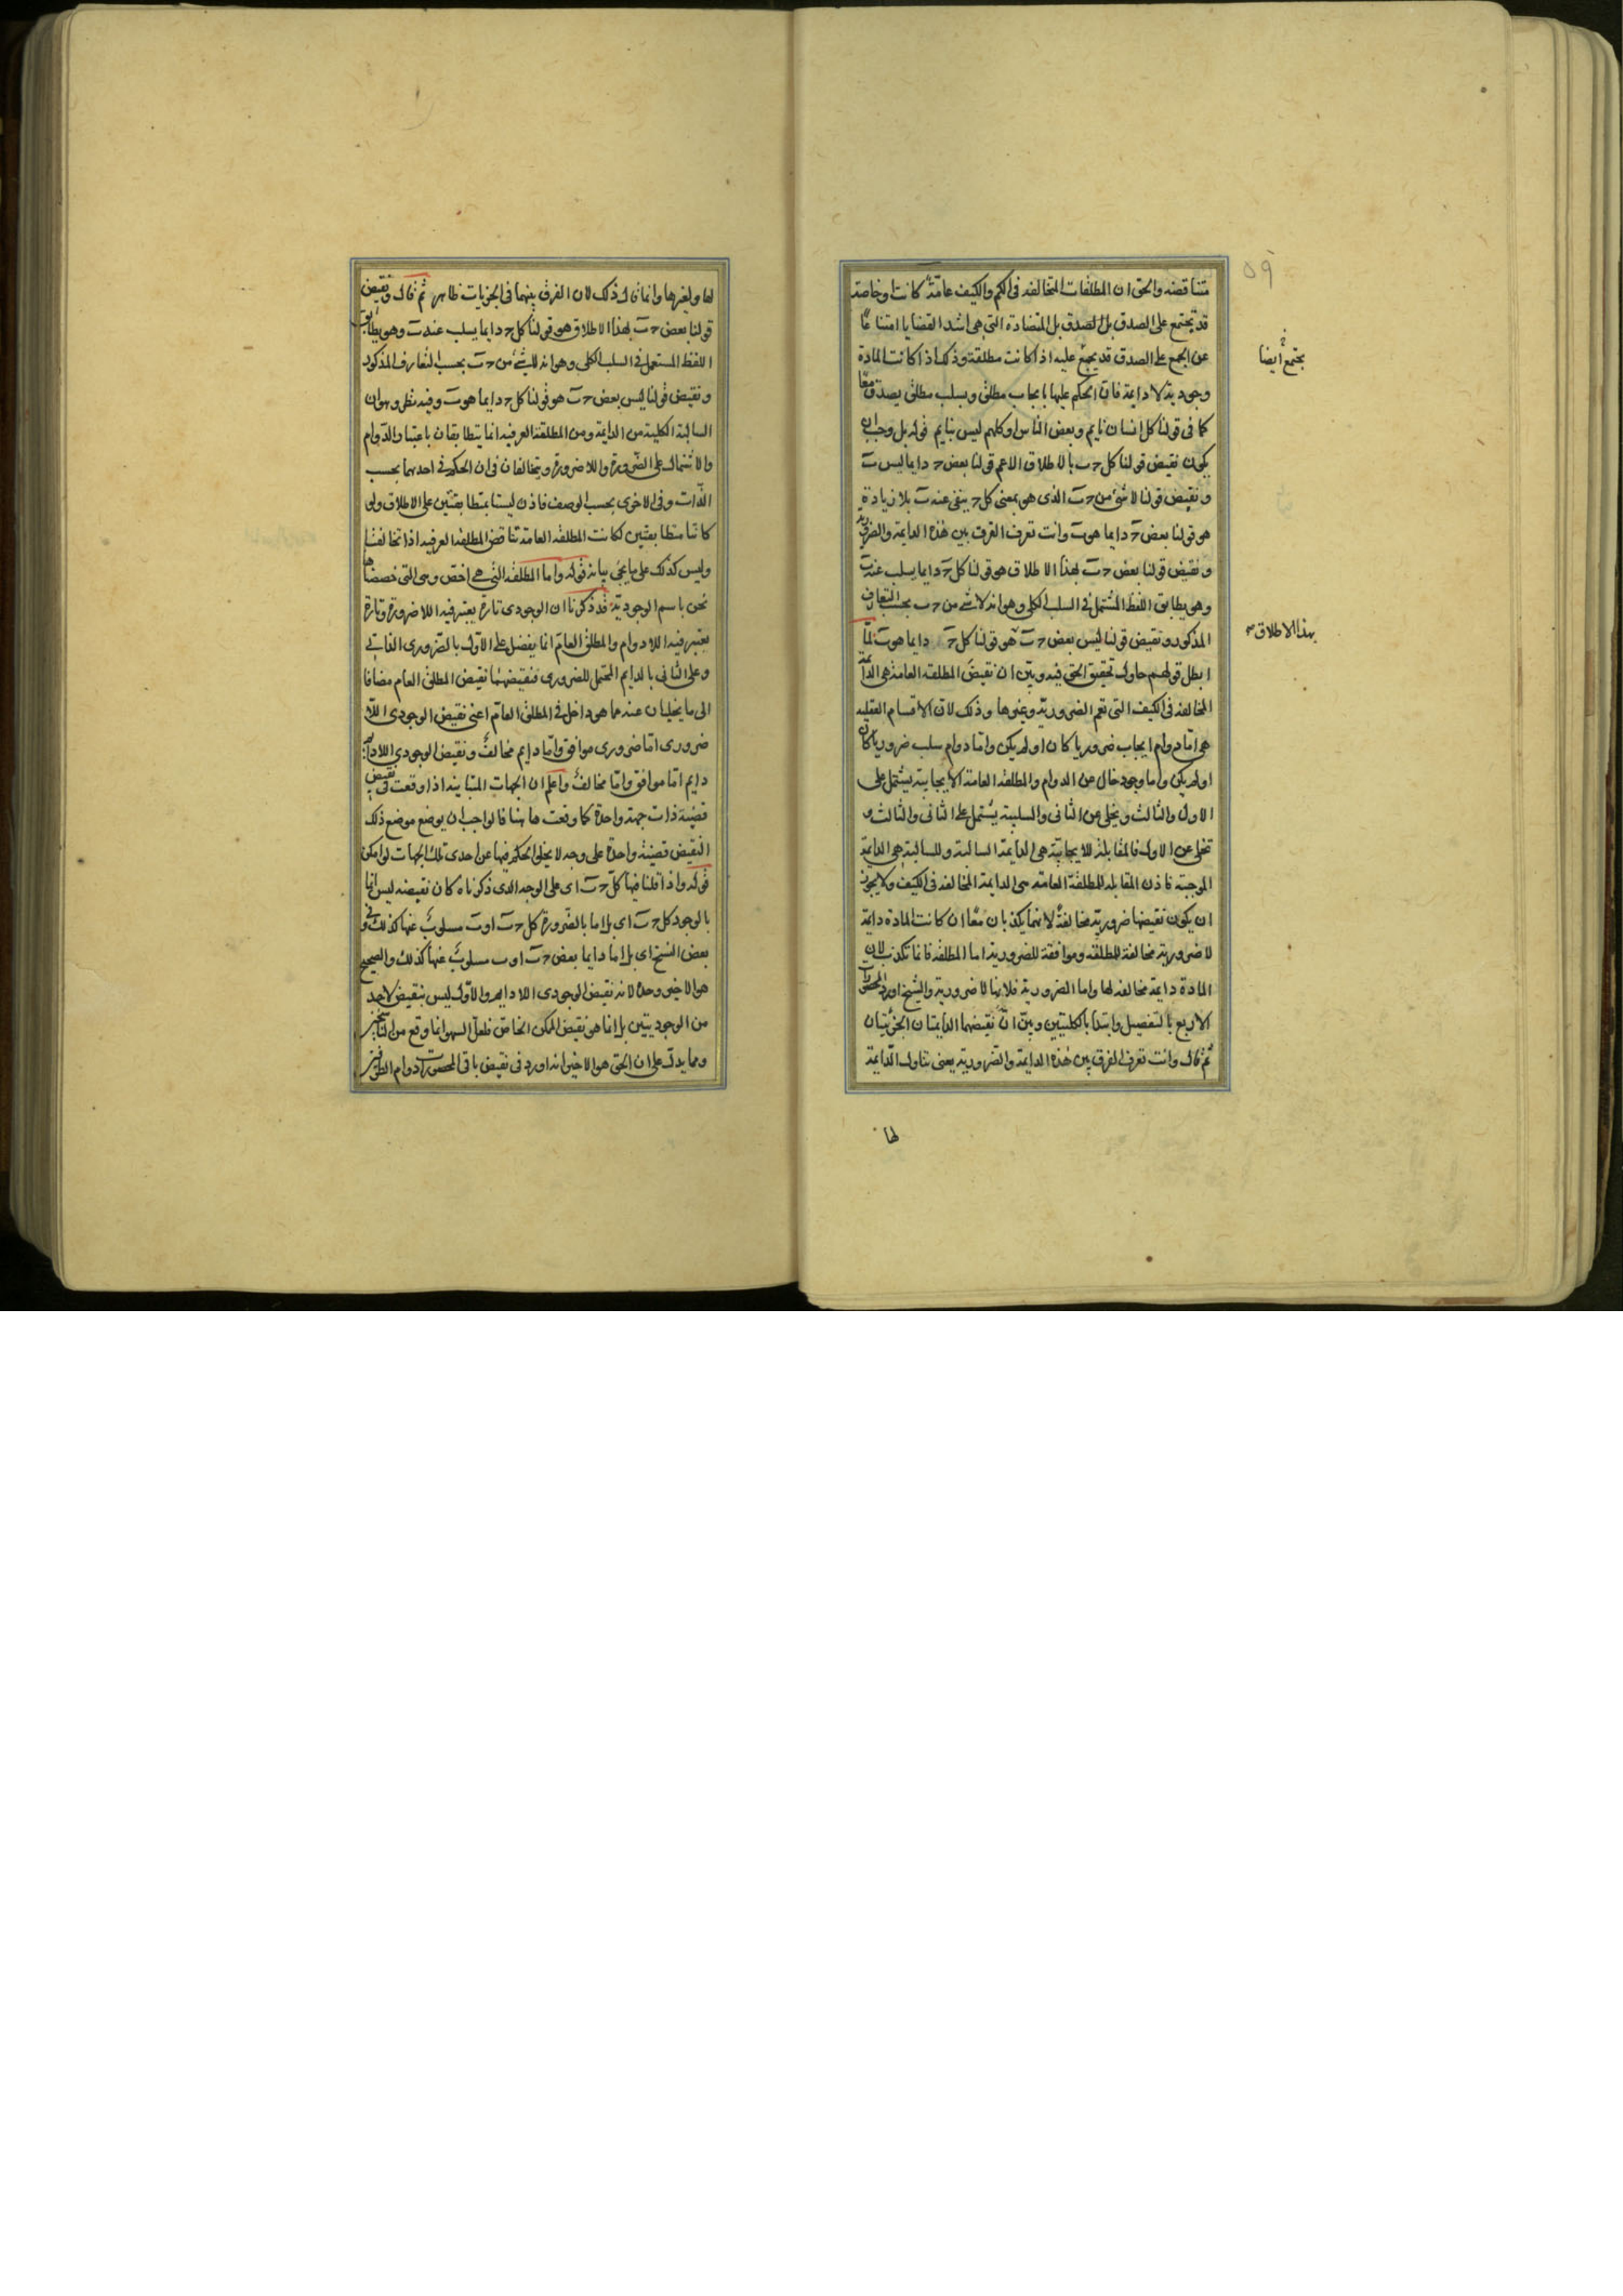 متناقضه والحق ان المطلقات المتخالفه فى الكم والكيف عامّة كانت او خاصة
قد تجتمع على الصدق بل الصدق بل المتضادة التى هى اشد القضايا امتناعًا
عن الجمع على الصدق قد يجمع عليه اذا كانت مطلقة وذلك اذا كانت المادة
وجودية لا دايمة فان الحكم عليها بايجاب مطلق وبسلب مطلق يصدق معًا
كما فى قولنا كل انسان نايم وبعض الناس او كلهم ليس بنايم قوله بل وجب ان
يكون نقيض قولنا كل ج ب بالاطلاق الاعم قولنا بعض ج دايما ليس ب
ونقيض قولنا لا شئ من ج ب الذى هو بمعنى كل ج ينفى عنه ب بلا زيادة
هو قولنا بعض ج دايما هو ب وانت تعرف الفرق بين هذه الدايمة والضرورية
ونقيض قولنا بعض ج ب بهذا الاطلاق هو قولنا كل ج دايما يسلب عنه ب
وهو يطابق اللفظ المشتمل فى السلب الكلى وهو انه لا شئ من ج ب بحسب التعارف
المذكور ونقيض قولنا ليس بعض ج ب هو قولنا كل ج دايما هو ب لمّا
ابطل قولهم حاول تحقيق الحق فيه وبيّن ان نقيض المطلقه العامة هى الدائمة
المخالفه فى الكيف التى تعم الضرورية وغيرها وذلك لان الاقسام العقليه
هى امّا دوام ايجاب ضروريا كان او لم يكن وامّا دوام سلب ضروريا كان
او لم يكن واما وجود خال عن الدوام والمطلقه العامة الايجابية يشتمل على
الاول والثالث ويخلى عن الثانى والسلبية يشتمل على الثانى والثالث و
تخلى عن الاول فالمقابلة للايجابية هى الدايمة السالبة وللسالبة هى الدايمة
الموجبة فاذن المقابله للمطلقة العامة هى الدايمة المخالفه فى الكيف ولا يجوز
ان يكون نقيضها ضرورية مخالفة لانهما يكذبان معًا ان كانت المادة دايمة
لا ضرورية مخالفة للمطلقه وموافقة للضرورية اما المطلقه فانما تكذب لان
المادة دايمة مخالفه لها واما الضرورية فلانها لا ضرورية والشيخ اورد المحصورات
الاربع بالتفصيل وابتدا بالكليتين وبيّن انّ نقيضهما الدايمتان الجزئيتان
ثم قال وانت تعرف الفرق بين هذه الدايمة والضرورية يعنى تناول الدّايمة
لها
يجتمع ايضا
بهذا الاطلاق
٥٩
لها ولغيرها وانما قال ذلك لان الفرق بينهما فى الجزيات ظاهر ثم قال ونقيض
قولنا بعض ج ب بهذا الاطلاق هو قولنا كل ج دايما يسلب عنه ب وهو يطابق
اللفظ المستعمل فى السلب الكلى وهو انه لا شئ من ج ب بحسب التعارف المذكور
ونقيض قولنا ليس بعض ج ب هو قولنا كل ج دايما هو ب وفيه نظر وهو ان
السالبة الكلية من الدايمة ومن المطلقة العرفيه انما يتطابقان باعتبار الدّوام
والاشتمال على الضّرورة واللاضرورة ويتخالفان فى ان الحكم فى احدهما بحسب
الذّات وفى الاخرى بحسب الوصف فاذن ليستا بمتطابقتين على الاطلاق ولو
كانتا متطابقتين لكانت المطلقه العامة تناقض المطلقه العرفيه اذا تخالفتا
وليس كذلك على ما يجئ بيانه قوله واما المطلقه التى هى اخص وهى التى خصصناها
نحن باسم الوجودية قد ذكرنا ان الوجودى تارة يعتبر فيه اللاضرورة وتارة
يعتبر فيه اللادوام والمطلق العام انما يفضل على الاول بالضرورى الذاتى
وعلى الثانى بالدايم المحتمل للضرورى فنقيضهما نقيض المطلق العام مضافا
الى ما يخليان عنه مما هو داخل فى المطلق العام اعنى نقيض الوجودى اللا
ضرورى امّا ضرورى موافق وامّا دايم مخالف ونقيض الوجودى اللادائم
دايم امّا موافق وامّا مخالف واعلم ان الجهات المتباينه اذا وقعت فى نقيض
قضية ذات جهة واحدة كما وقعت هاهنا فالواجب ان يوضع موضع ذلك
النقيض قضية واحدة على وجه لا يخلى الحكم فيها عن احدى تلك الجهات لو امكن
قوله واذا قلنا فيها كل ج ب اى على الوجه الذى ذكرناه كان نقيضه ليس انما
بالوجود كل ج ب اى بل اما بالضرورة كل ج ب او ب مسلوب عنها كذلك وفى
بعض النسخ اى بل اما دايما بعض ج ب او ب مسلوب عنها كذلك والصحيح
هو الاخير وحده لانه نقيض الوجودى اللادايم والاول ليس بنقيض لاحد
من الوجوديتين بل انما هو نقيض الممكن الخاص فلعل السهو انما وقع من
ومما يدل على ان الحق هو الاخير انه اورد فى نقيض باقى المحصورات دوام